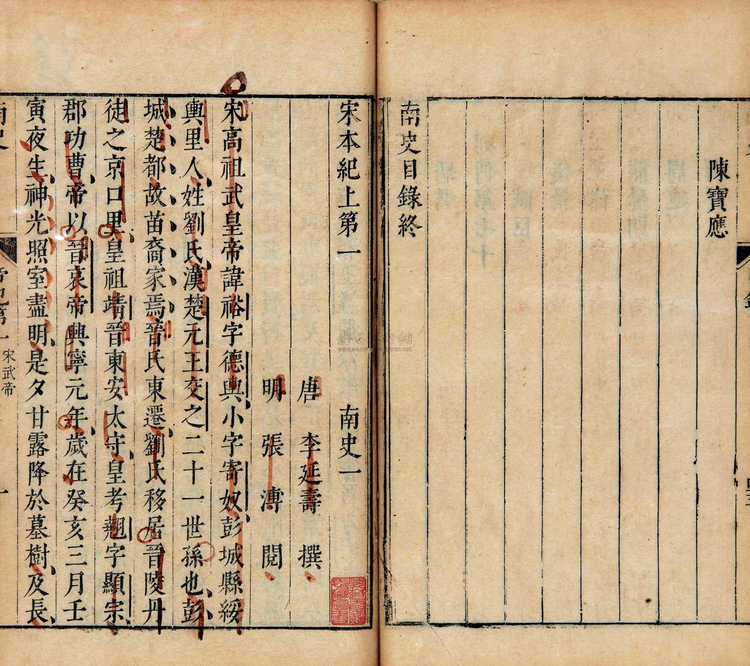 陳寶應
南史目錄終
宋本紀上第一 南史一
唐 李延壽 撰
明 張溥 閱
宋高祖武皇帝諱裕字德輿小字寄奴彭城縣綏
輿里人姓劉氏漢楚元王交之二十一世孫也彭
城楚都故苗裔家焉晉氏東遷劉氏移居晉陵丹
徒之京口里皇祖靖晉東安太守皇考翹字顯宗
郡功曹帝以晉哀帝興寧元年歲在癸亥三月壬
寅夜生神光照室盡明是夕甘露降於墓樹及長
南史
帝紀第一 宋武帝